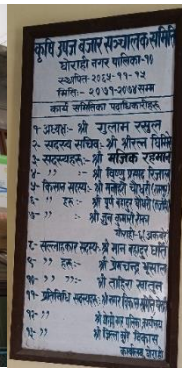 कृषि उपज बजार सञ्चालक समिति
घोराही नगर पालिका-१०
स्थापित २०६५-११-१५
मिति:- २०७१-२०७४ सम्म
कार्य समितिका पदाधिकारीहरू
१- अध्यक्ष:- श्री गुलाम रसुल
२- सदस्य सचिव:- श्री श्रीरत्न घिमिरे
३- सदस्यहरू:- श्री मजिक रहमान
४- ,, :- श्री विष्णु प्रसाद रिजाल
५- किसान सदस्य:- श्री चौधरी
६- ,, हरू:- श्री पूर्ण बहादुर चौधरी
७- ,, श्री कुमारी रोका
घोराही-
८- सल्लाहकार सदस्य:- श्री मान बहादुर वलि
९- ,, हरू:- श्री प्रेमचन्द्र भुसाल
१०- ,, श्री ताहिरा खातुन
११- प्रतिनिधि सदस्यहरू:-
१२- ,, श्री नगर पालिका कार्यालय
१३- ,, श्री जिल्ला कृषि विकास
कार्यालय, घोराही